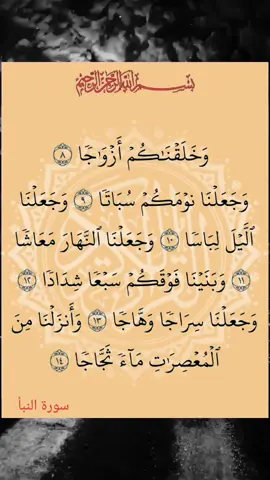 بسم الله الرحمن الرحيم
وَخَلَقۡنَـٰكُمۡ أَزۡوَ ٰجࣰا ٨
وَجَعَلۡنَا نَوۡمَكُمۡ سُبَاتࣰا ٩ وَجَعَلۡنَا
ٱلَّيۡلَ لِبَاسࣰا ١٠ وَجَعَلۡنَا ٱلنَّهَارَ مَعَاشࣰا
١١ وَبَنَيۡنَا فَوۡقَكُمۡ سَبۡعࣰا شِدَادࣰا ١٢
وَجَعَلۡنَا سِرَاجࣰا وَهَّاجࣰا ١٣ وَأَنزَلۡنَا مِنَ
ٱلۡمُعۡصِرَ ٰتِ مَاۤءࣰ ثَجَّاجࣰا ١٤
سورة النبأ